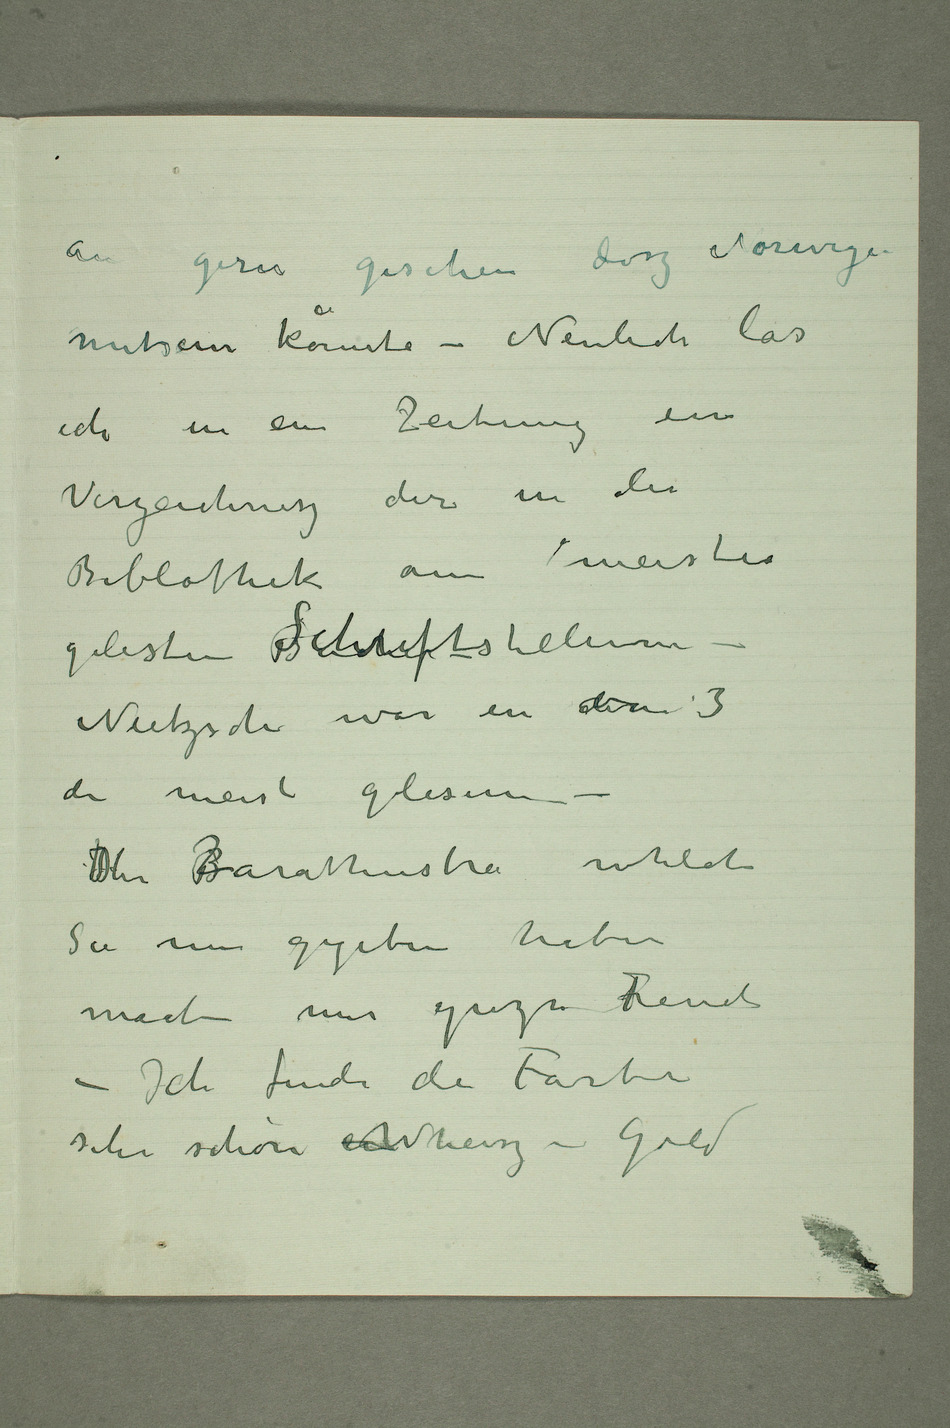 an gern geschen dasz Norwege
mitsein könnte – Neulich las
ich in ein Zeitung ein
Verzeichnisz der in die
Biblothek am meisten
gelesten Schriftstellern –
Nietzsche war ein von 3
die meist glesenen –
Der Zarathustra whelche
Sie mir gegeben haben
macht mir grozse Freude
– Ich finde die Farben
sehr schön Wheisz – Gold